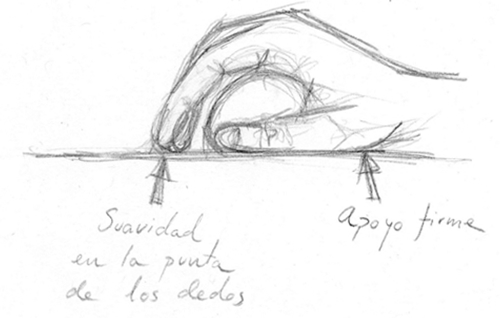 Suavidad
en la punta
de los dedos
Apoyo firme